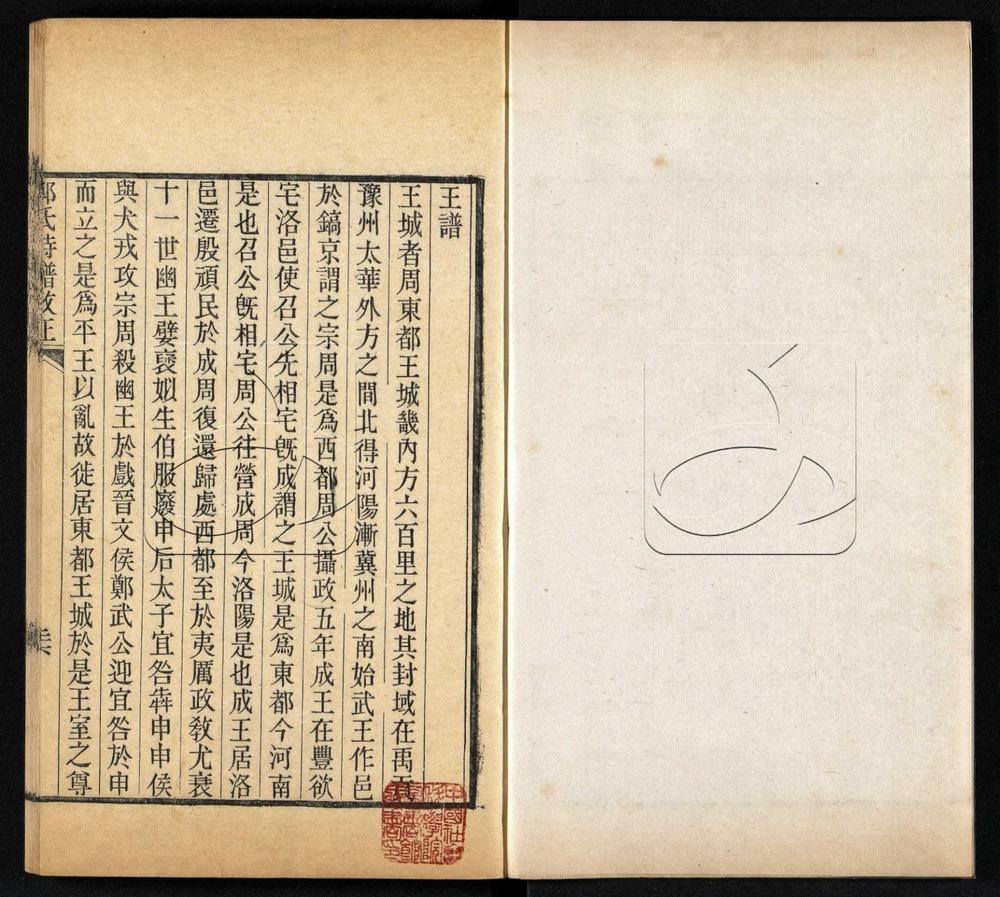 王譜
王城者周東都王城畿內方六百里之地其封域在禹貢
豫州太華外方之間北得河陽漸冀州之南始武王作邑
於鎬京謂之宗周是爲西都周公攝政五年成王在豐欲
宅洛邑使召公先相宅旣成謂之王城是爲東都今河南
是也召公旣相宅周公往營成周今洛陽是也成王居洛
邑遷殷頑民於成周復還歸處西都至於夷厲政敎尤衰
十一世幽王嬖襃姒生伯服廢申后太子宜咎犇申申侯
與犬戎攻宗周殺幽王於戲晉文侯鄭武公迎宜咎於申
而立之是爲平王以亂故徙居東都王城於是王室之尊
鄭氏詩譜攷正